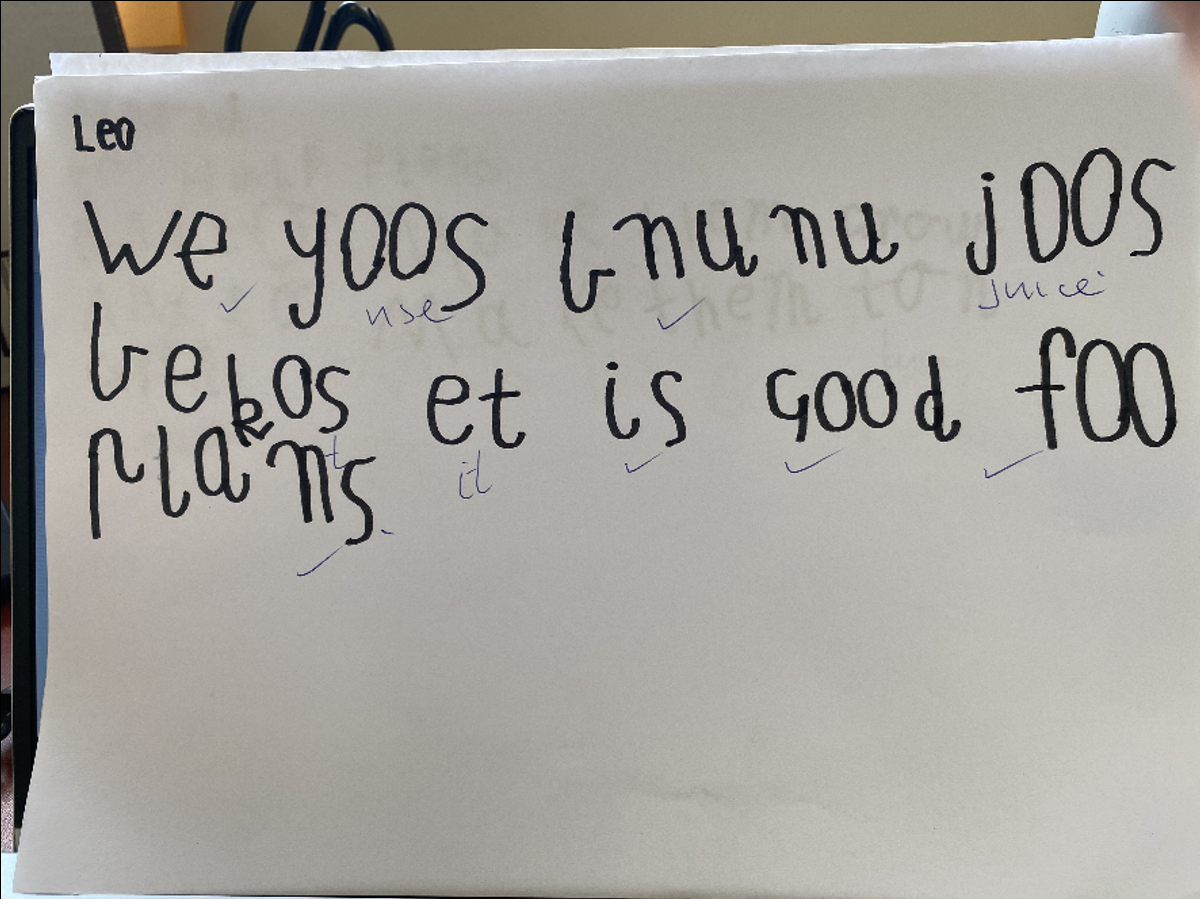 Leo
We yoos bnunu joos
use juice
bekos et is Good foo
it
plans.